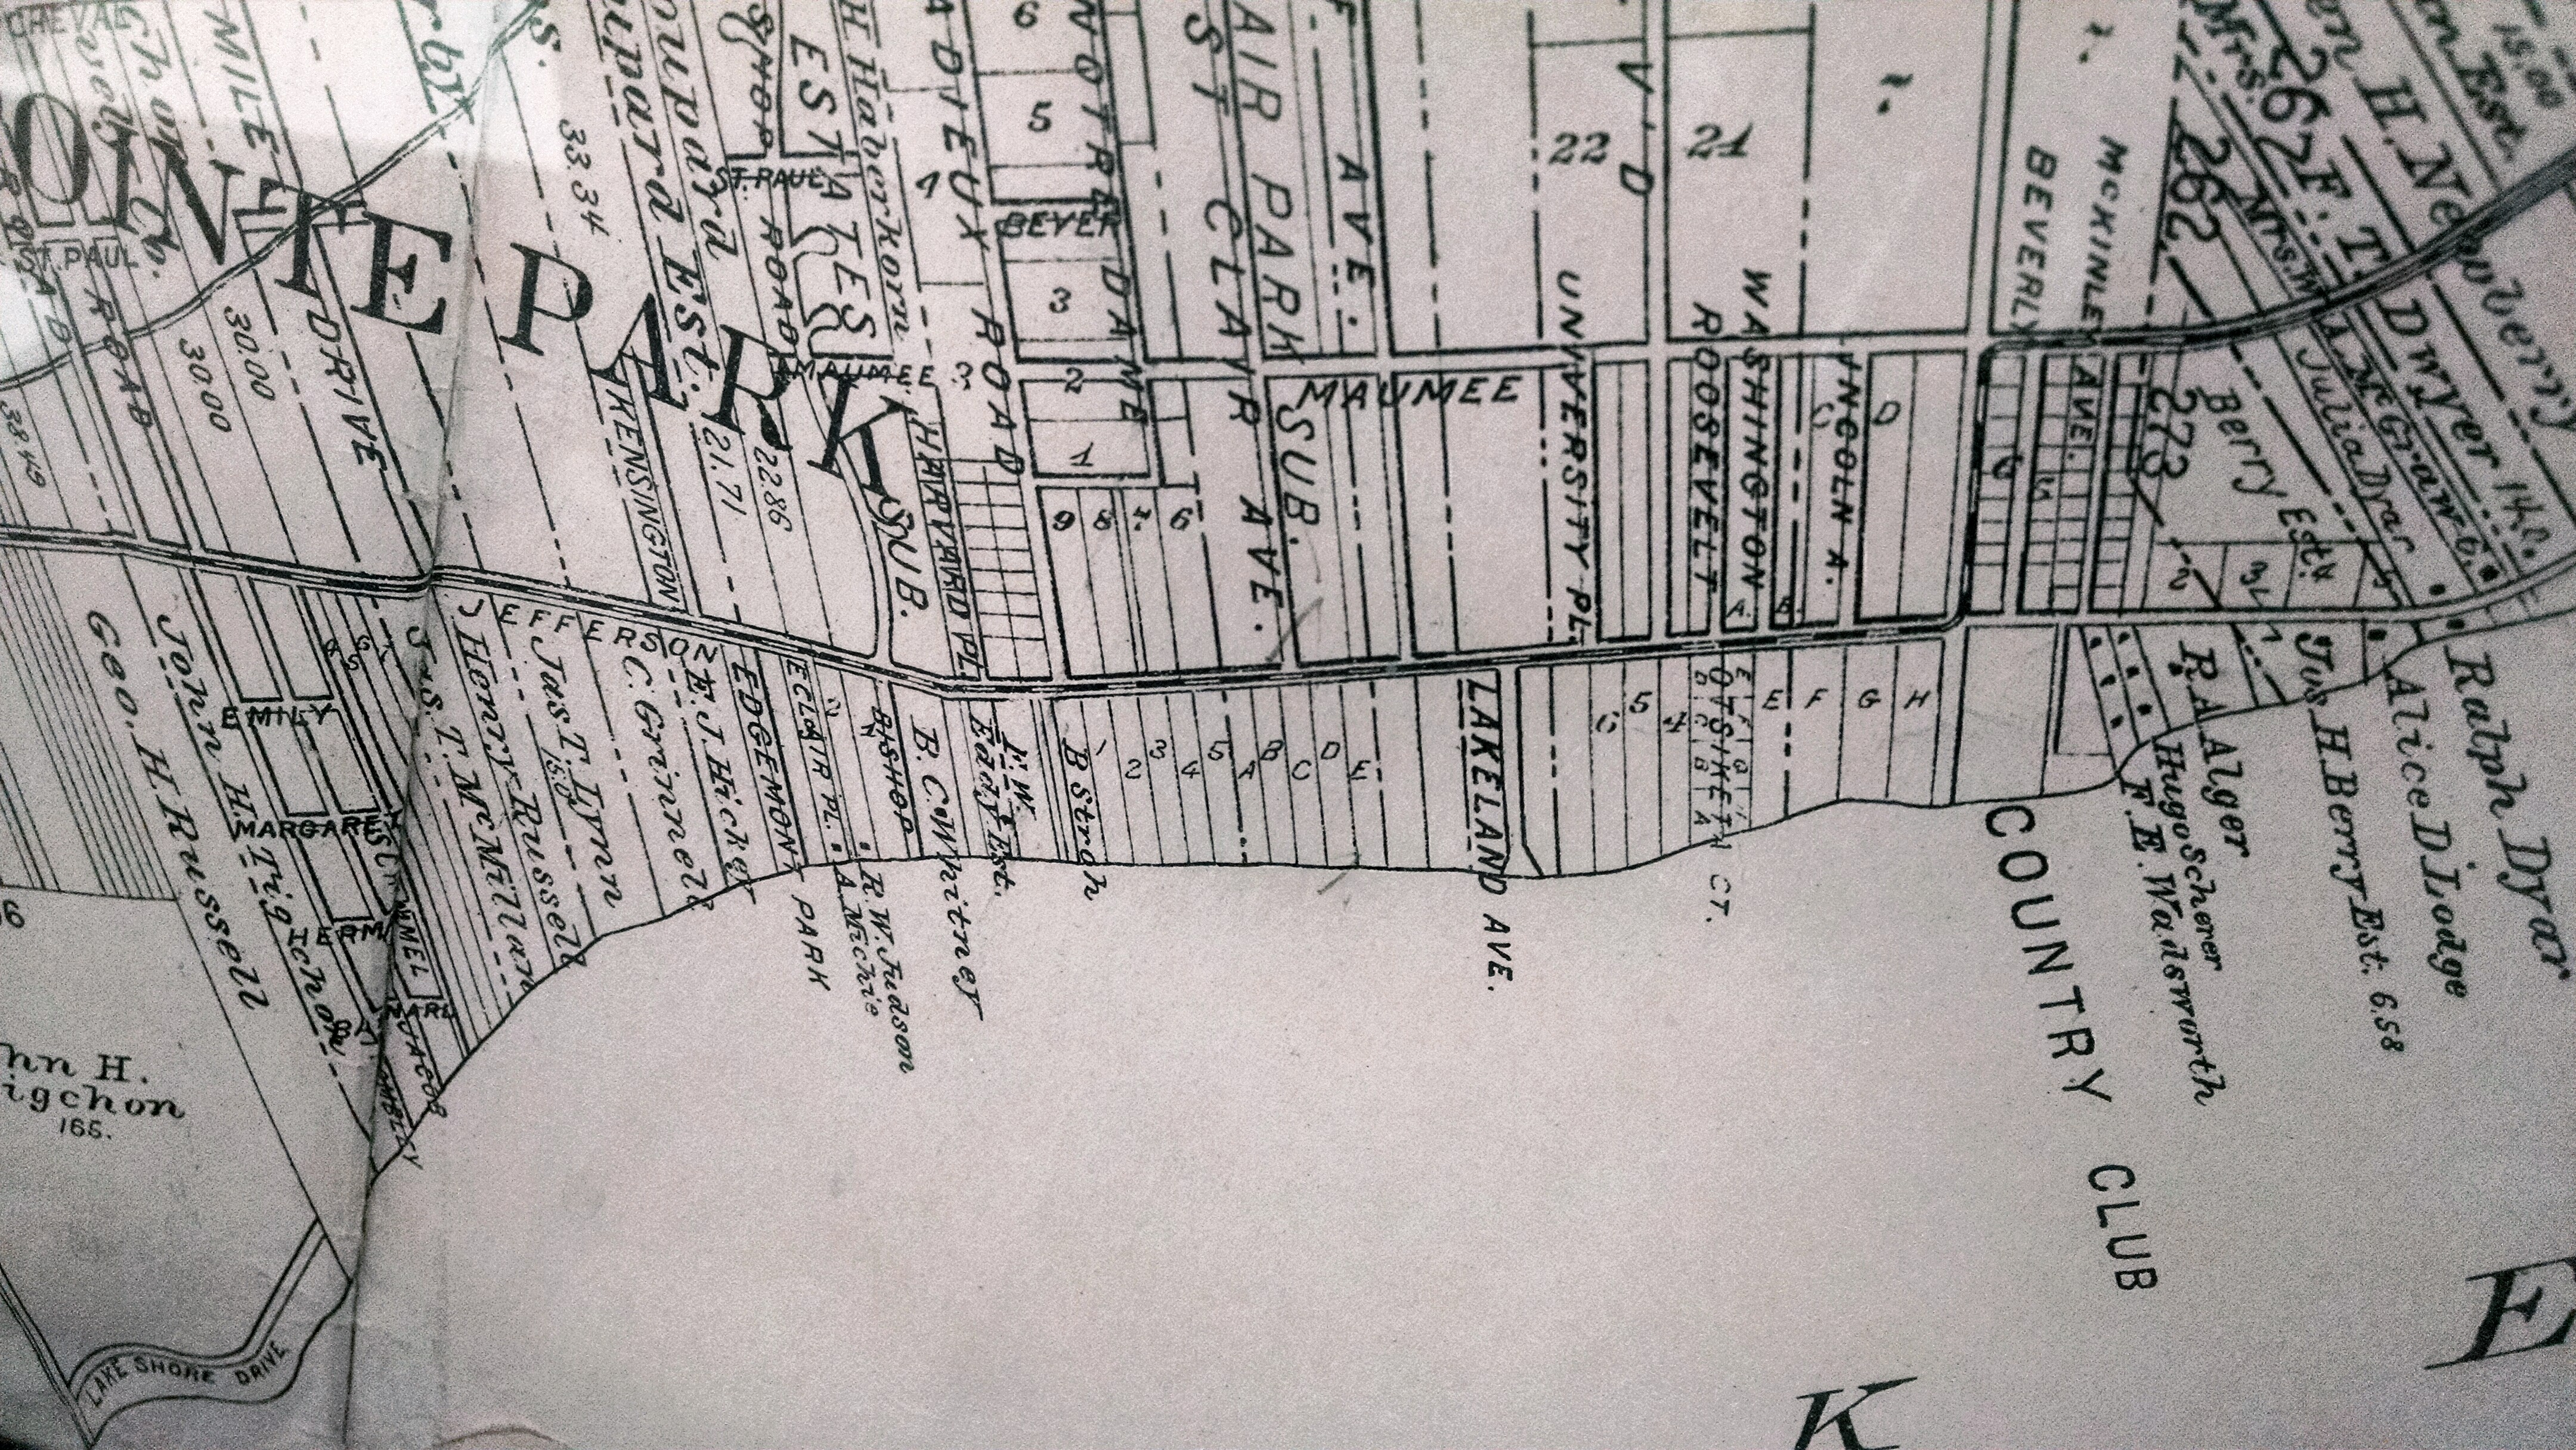 CHEVAL
MILE DRIVE
OINTE PARK
ST. PAUL
ROAD
30.00
30.00
38.49
33.34
upard Est.
21.71
22.86
ST. PAUL
BISHOP
ROAD
ESTATES
H Haberkorn
ADIEUX ROAD
NOTRE DAME
6
5
4
BEYER
3
3
2
1
MAUMEE
ST CLAIR AVE.
AIR PARK SUB.
F AVE.
22
V'D
21
UNIVERSITY PL.
WASHINGTON
ROOSEVELT
LINCOLN A.
MAUMEE
BEVERLY
McKINLEY AVE.
Mrs.
262
267
F. T. Dwyer 14.0.
en H. Newberry
m Est.
15.00
Mrs. W
McGraw
Julia Dyar
273
Berry Est.
2
3
4
KENSINGTON
SUB.
HARVARD PL.
9 8 7 6
C
D
A.
B.
JEFFERSON
Geo. H. Russell
John H. Trigchon
EMILY
MARGARET
Jas. T. McMillan
Henry Russell
Jas T. Lynn
C. Grinnell
E. J. Hicker
EDGEMONT PARK
ECLAIR PL.
BISHOP
R. W. Judson
A. McChrie
B. C. Whitney
F. W. Eddy Est.
B Stroh
1 2 3 4 5 A B C D E
LAKELAND AVE.
6 5 4
CT.
E F G H
COUNTRY CLUB
R A Alger
Hugo Scherer
F. E. Wadsworth
Jos H. Berry Est. 6.58
Alice D. Lodge
Ralph Dyar
nn H.
igchon
165.
LAKE SHORE DRIVE
K
E